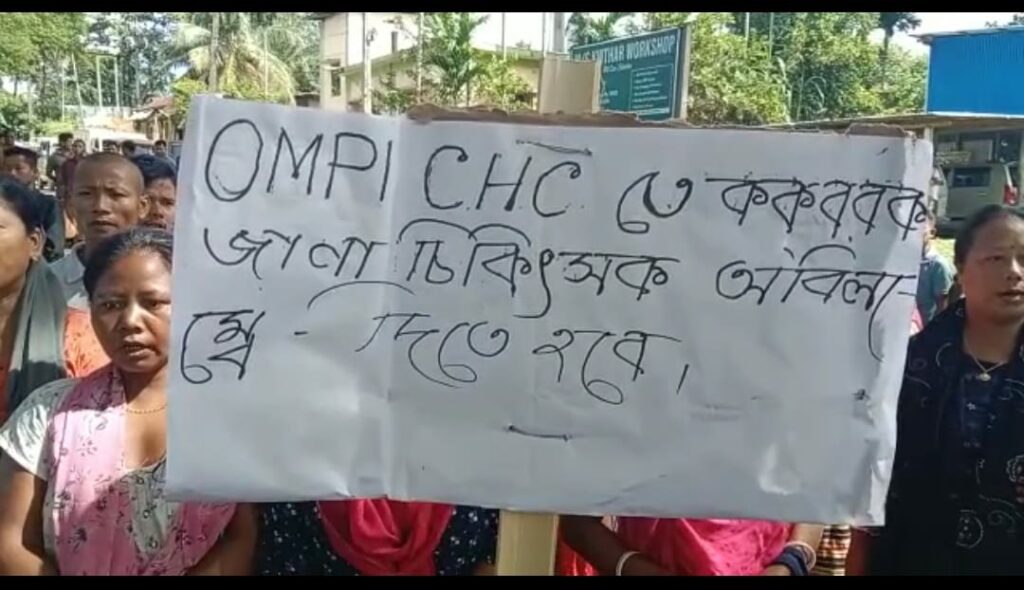 WORKSHOP
OMPI CHC তে ককবরক
জানা চিকিৎসক অবিলা-
ম্বে - দিতে হবে।